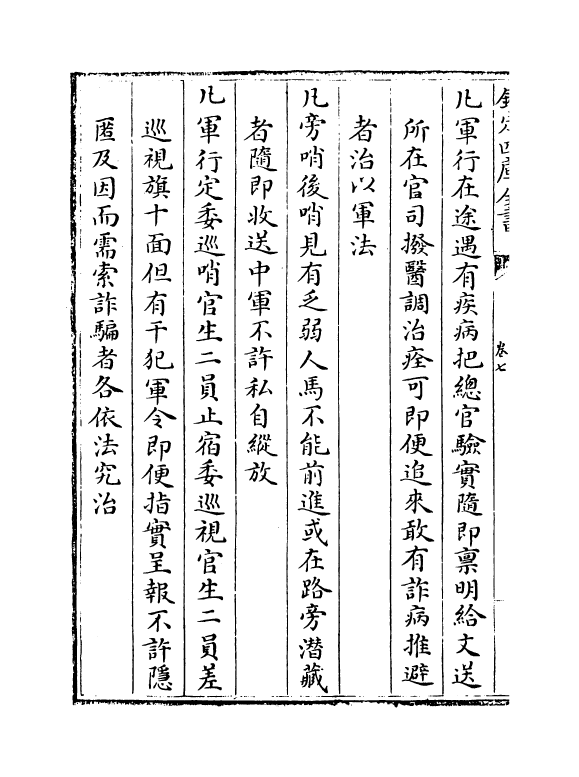 欽定四庫全書
卷七
凡軍行在途遇有疾病把總官驗實隨即禀明給文送
所在官司撥醫調治痊可即便追來敢有詐病推避
者治以軍法
凡旁哨後哨見有乏弱人馬不能前進或在路旁潛藏
者隨即收送中軍不許私自縱放
凡軍行定委巡哨官生二員止宿委巡視官生二員差
巡視旗十面但有干犯軍令即便指實呈報不許隱
匿及因而需索詐騙者各依法究治